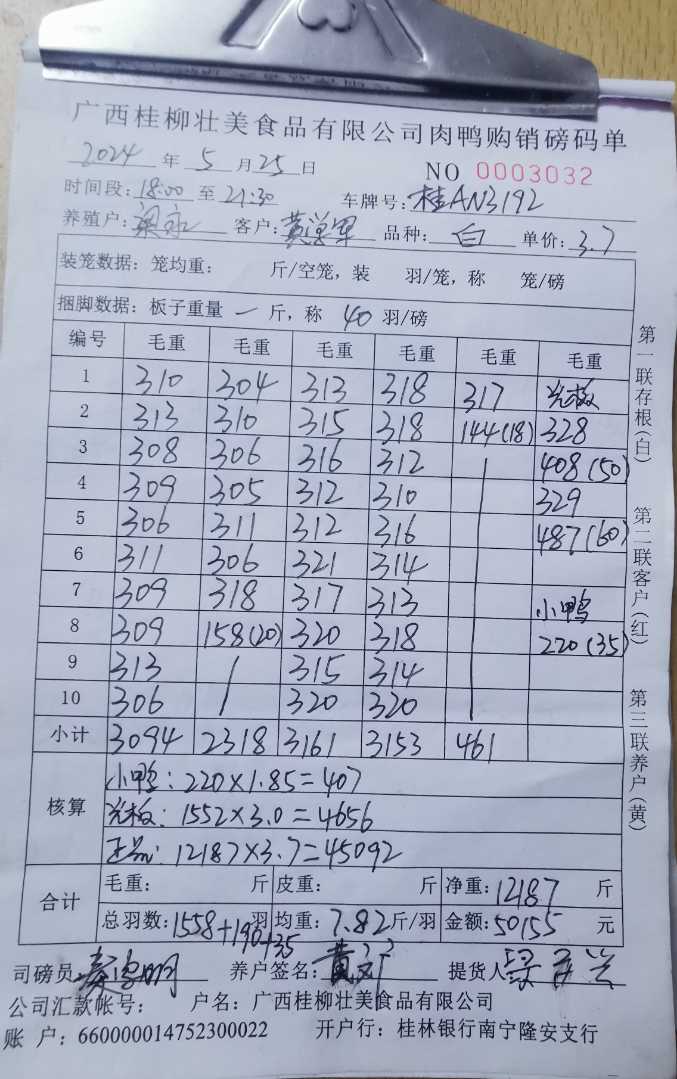 广西桂柳壮美食品有限公司肉鸭购销磅码单
2024 年 5 月 25 日 NO 0003032
时间段: 18:00 至 21:30 车牌号: 桂AN3192
养殖户: 梁永 客户: 黄 军 品种: 白 单价: 3.7
装笼数据: 笼均重: 斤/空笼, 装 羽/笼, 称 笼/磅
捆脚数据: 板子重量 一 斤, 称 40 羽/磅
编号 毛重 毛重 毛重 毛重 毛重 毛重
1 310 304 313 318 317 光板
2 313 310 315 318 144(18) 328
3 308 306 316 312 408(50)
4 309 305 312 310 329
5 306 311 312 316 487(60)
6 311 306 321 314
7 309 318 317 313 小鸭
8 309 158(20) 320 318 220(35)
9 313 / 315 314
10 306 / 320 320
小计 3094 2318 3161 3153 461
核算
小鸭: 220×1.85=407
光板: 1552×3.0=4656
正品: 12187×3.7=45092
合计
毛重: 斤 皮重: 斤 净重: 12187 斤
总羽数: 1558+190+35 羽 均重: 7.82 斤/羽 金额: 50155 元
司磅员: 秦 明 养户签名: 黄 提货人: 梁 兴
公司汇款帐号: 户名: 广西桂柳壮美食品有限公司
账 户: 660000014752300022 开户行: 桂林银行南宁隆安支行
第一联存根(白)
第二联客户(红)
第三联养户(黄)